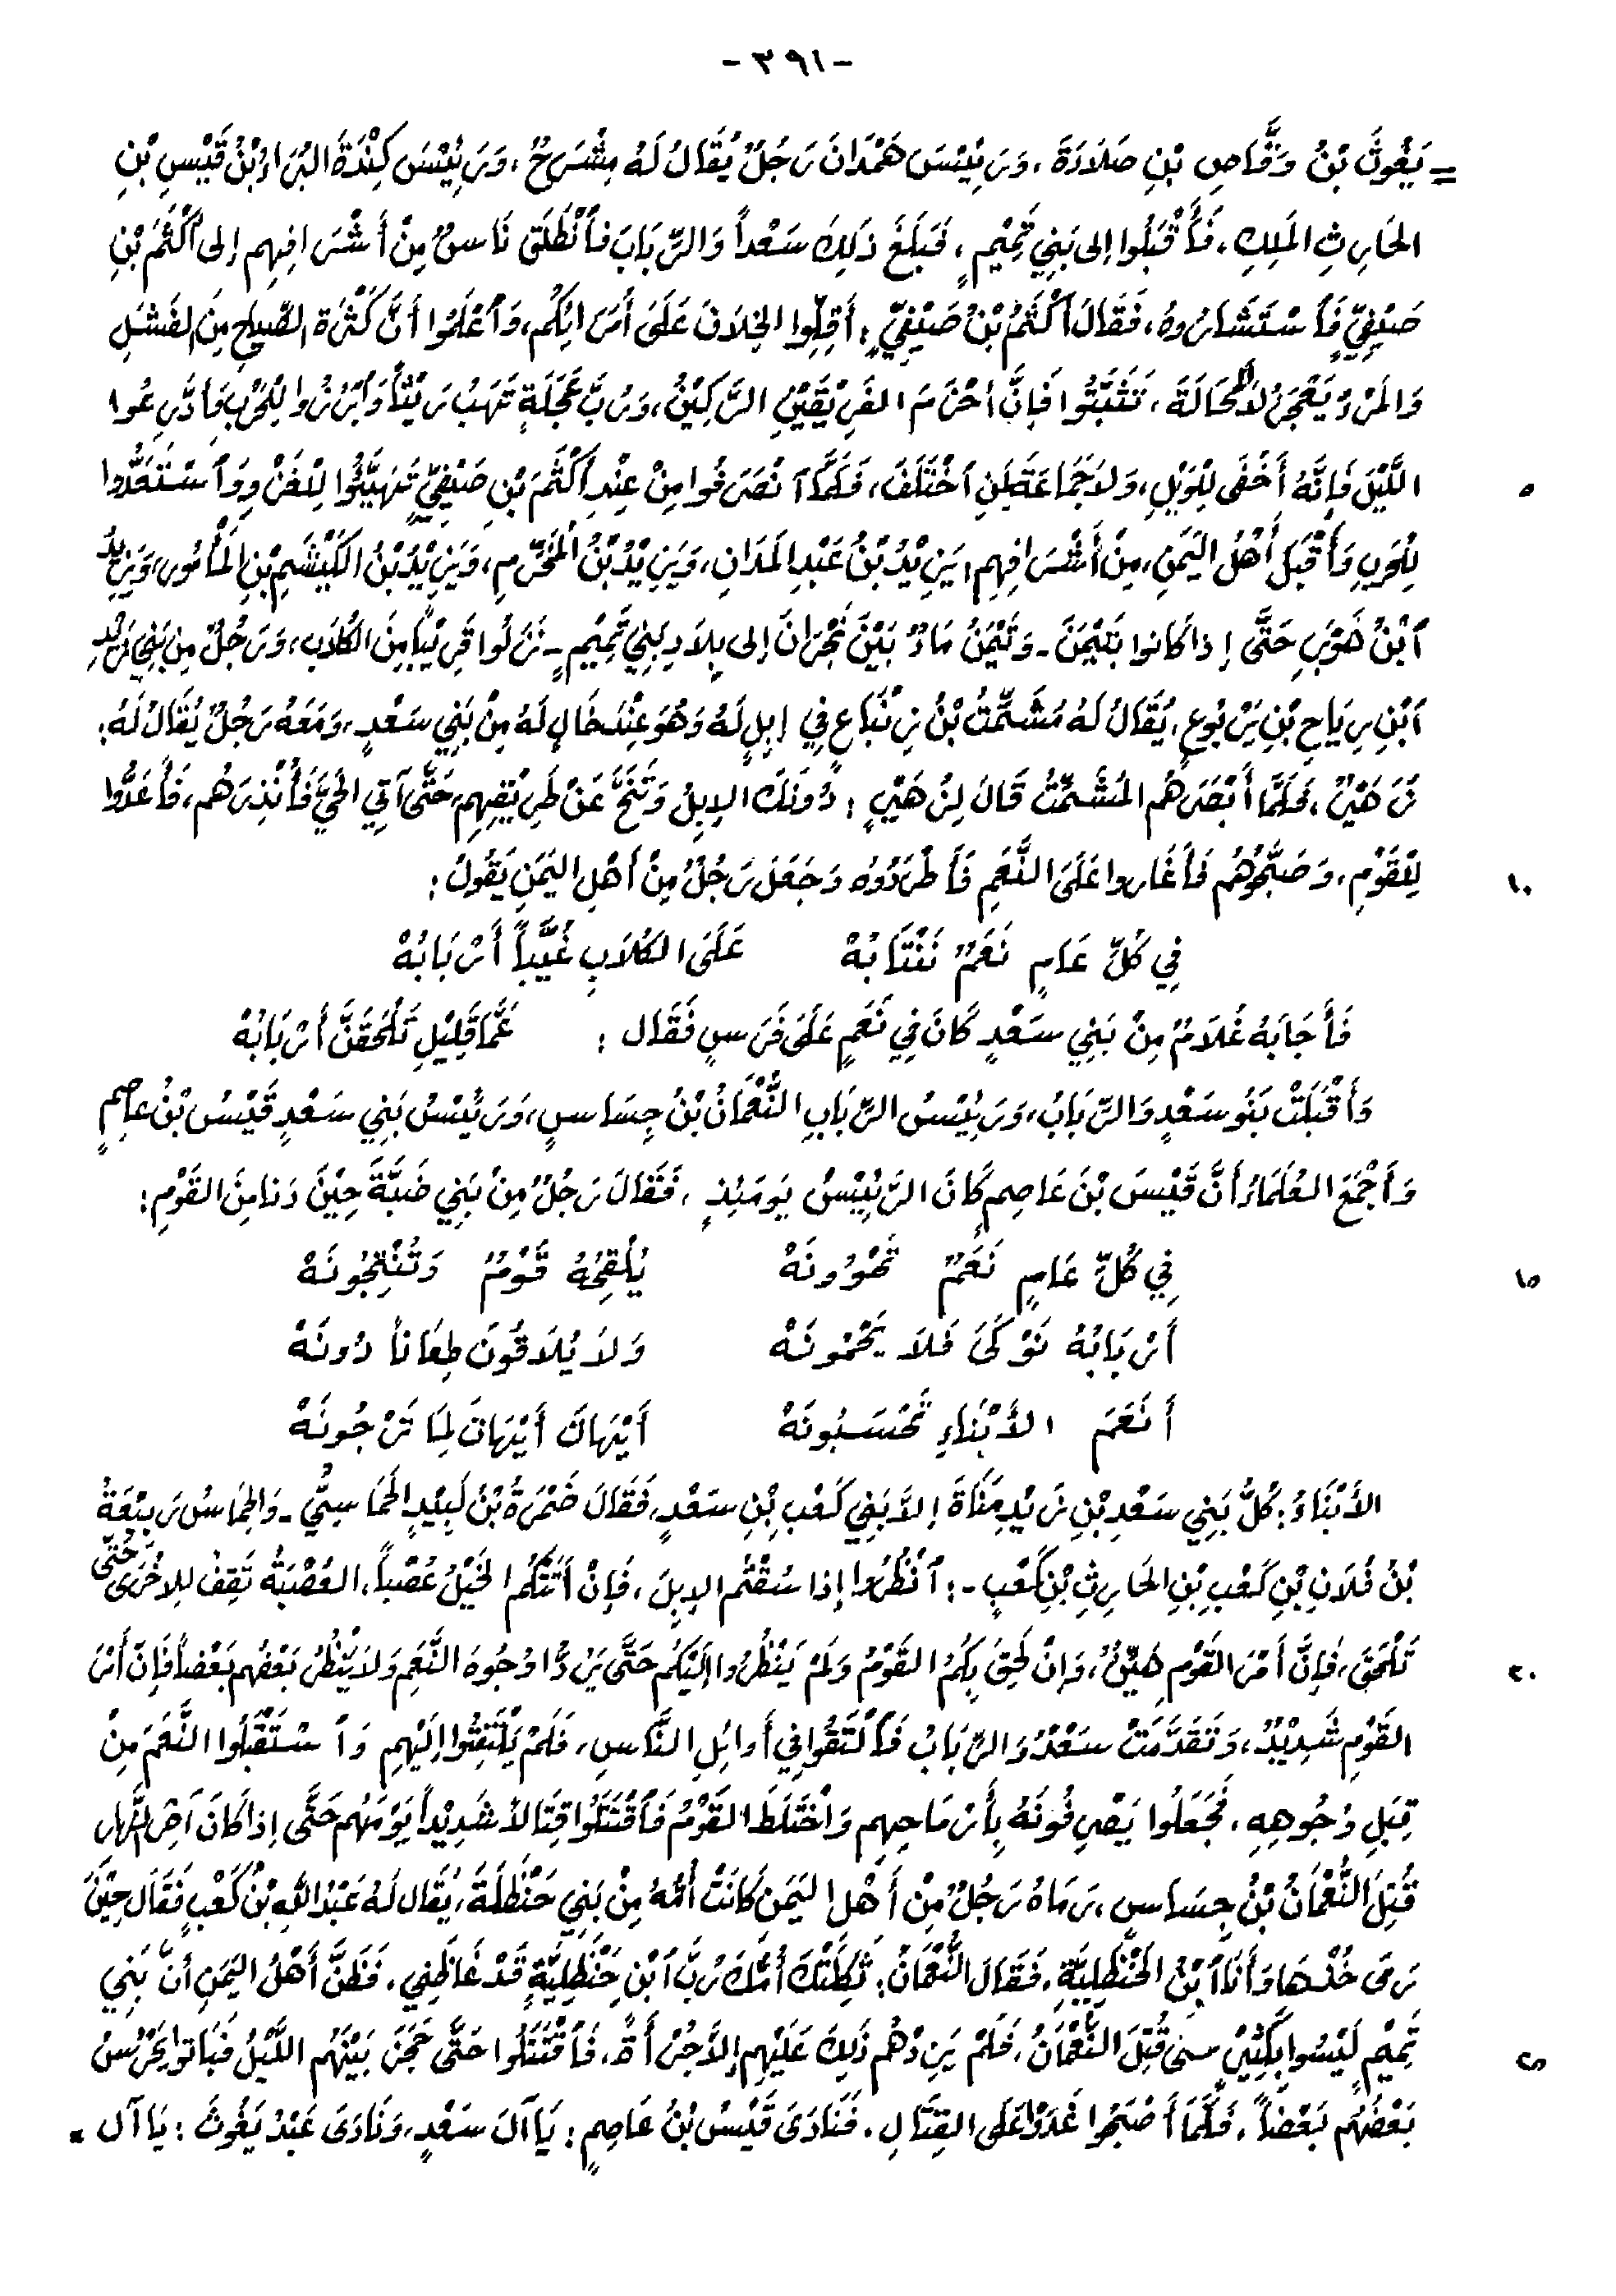 - ٣٩١ -
= يَغُوثَ بْنُ وَقَّاصِ بْنِ صَلَاءَةَ، وَرَئِيْسَ هَمْدَانَ رَجُلٌ يُقَالُ لَهُ مِشْرَحٌ، وَرَئِيْسَ كِنْدَةَ البَرَاءُ بْنُ قَيْسِ بْنِ
الحَارِثِ المَلِكِ، فَأَقْبَلُوا إلى بَنِي تَمِيْمٍ، فَبَلَغَ ذَلِكَ سَعْداً وَالرِّبَابَ فَٱنْطَلَقَ نَاسٌ مِنْ أَشْرَافِهِم إلى أَكْثَمَ بْنِ
صَيْفِيٍّ فَٱسْتَشَارُوهُ، فَقَالَ أَكْثَمُ بْنُ صَيْفِيٍّ: أَقِلُّوا الخِلَافَ عَلَى أُمَرَائِكُم، وَٱعْلَمُوا أَنَّ كَثْرَةَ الصِّيَاحِ مِنَ الفَشَلِ
وَالمَرْءُ يَعْجَزُ لَا مَحَالَةَ، تَثَبَّتُوا فَإِنَّ أَحْزَمَ الفَرِيْقَيْنِ الرَّكِيْنُ، وَرُبَّ عَجَلَةٍ تَهَبُ رَيْثاً وَٱبْرُزُوا لِلْحَرْبِ وَٱدَّرِعُوا
اللَّيْلَ فَإِنَّهُ أَخْفَى لِلْوَيْلِ، وَلَا جَمَاعَةَ لِمَنِ ٱخْتَلَفَ، فَلَمَّا ٱنْصَرَفُوا مِنْ عِنْدِ أَكْثَمَ بْنِ صَيْفِيٍّ تَهَيَّئُوا لِلْغَزْوِ وَٱسْتَعَدُّوا ٥
لِلْحَرْبِ وَأَقْبَلَ أَهْلُ اليَمَنِ، مِنْ أَشْرَافِهِم، يَزِيْدُ بْنُ عَبْدِ المَدَانِ، وَيَزِيْدُ بْنُ المُخَرِّمِ، وَيَزِيْدُ بْنُ الكَيْشَمِ بْنِ المَأْمُورِ، وَيَزِيْدُ
ٱبْنُ هَوْبَرٍ حَتَّى إذا كَانوا بِتَيْمَنَ - وَتَيْمَنُ مَاءٌ بَيْنَ نَجْرَانَ إلى بِلَادِ بَنِي تَمِيْمٍ - نَزَلُوا قَرِيْباً مِنَ الكُلَابِ، وَرَجُلٌ مِنْ بَنِي زَيْدِ
ٱبْنِ رِيَاحِ بْنِ يَرْبُوعٍ، يُقَالُ لَهُ مُشَمِّتُ بْنُ زِنْبَاعٍ فِي إبِلٍ لَهُ وَهُوَ عِنْدَ خَالٍ لَهُ مِنْ بَنِي سَعْدٍ، وَمَعَهُ رَجُلٌ يُقَالُ لَهُ:
زُهَيْرٌ، فَلَمَّا أَبْصَرَهُم المُشَمِّتُ قَالَ لِزُهَيْرٍ: دُونَكَ الإبِلَ وَتَنَحَّ عَنْ طَرِيْقِهِم، حَتَّى آتِي الحَيَّ فَأُنْذِرَهُم، فَأَعَدُّوا
لِلْقَوْمِ، وَصَبَّحُوهُم فَأَغَاروا عَلَى النَّعَمِ فَأَطْرَدُوهُ وَجَعَلَ رَجُلٌ مِنْ أَهْلِ اليَمَنِ يَقُولُ: ١٠
فِي كُلِّ عَامٍ نَعَمٌ نَنْتَابُهْ عَلَى الكُلَابِ غُيَّباً أَرْبَابُهْ
فَأَجَابَهُ غُلَامٌ مِنْ بَنِي سَعْدٍ كَانَ فِي نَعَمٍ عَلَى فَرَسٍ فَقَال: عَمَّا قَلِيْلٍ تَلْحَقَنَّ أَرْبَابُهْ
وَأَقْبَلَتْ بَنُو سَعْدٍ وَالرِّبَابُ، وَرَئِيْسُ الرِّبَابِ النُّعْمَانُ بْنُ جِسَاسٍ، وَرَئِيْسُ بَنِي سَعْدٍ قَيْسُ بْنُ عَاصِمٍ
وَأَجْمَعَ العُلَمَاءُ أَنَّ قَيْسَ بْنَ عَاصِمٍ كَانَ الرَّئِيْسُ يَومَئِذٍ، فَقَالَ رَجُلٌ مِنْ بَنِي ضَبَّةَ حِيْنَ دَنا مِنَ القَوْمِ:
فِي كُلِّ عَامٍ نَعَمٌ تَحْوُونَهْ يُلْقِحُهُ قَوْمٌ وَتُنْتِجُونَهْ ١٥
أَرْبَابُهُ نَوْكَى فَلَا يَحْمُونَهْ وَلَا يُلَاقُونَ طِعَاناً دُونَهْ
أَنَعَمَ الأَبْنَاءِ تَحْسَبُونَهْ أَيْهَاتَ أَيْهَاتَ لِمَا تَرْجُونَهْ
الأَبْنَاءُ: كُلُّ بَنِي سَعْدِ بْنِ زَيْدِ مَنَاةَ إلَّا بَنِي كَعْبِ بْنِ سَعْدٍ، فَقَالَ ضَمْرَةُ بْنُ لَبِيْدٍ الحِمَاسِيُّ - وَالحِمَاسُ رَبِيْعَةُ
بْنُ فُلَانِ بْنِ كَعْبِ بْنِ الحَارِثِ بْنِ كَعْبٍ -: ٱنْظُرُوا إذا سُقْتُم الإبِلَ، فَإِنْ أَتَتْكُم الخَيْلُ عُصَباً، العُصْبَةُ تَقِفُ لِلأُخْرَى حَتَّى
تَلْحَقَ، فَإِنَّ أَمْرَ القَوْمِ هَيِّنٌ، وَإنْ لَحِقَ بِكُمُ القَوْمُ وَلَمْ يَنْظُرُوا إلَيْكُم حَتَّى يَرُدُّوا وُجُوهَ النَّعَمِ وَلَا يَنْظُرُ بَعْضُهُم بَعْضاً فَإِنَّ أَمْرَ ٢٠
القَوْمِ شَدِيْدٌ، وَتَقَدَّمَتْ سَعْدٌ وَالرِّبَابُ فَٱلْتَقُوا فِي أَوائِلِ النَّاسِ، فَلَمْ يَلْتَفِتُوا إلَيْهِم وَٱسْتَقْبَلُوا النَّعَمَ مِنْ
قِبَلِ وُجُوهِهِ، فَجَعَلُوا يَصْرِفُونَهُ بِأَرْمَاحِهِم وَٱخْتَلَطَ القَوْمُ فَٱقْتَتَلُوا قِتَالاً شَدِيْداً يَوْمَهُم حَتَّى إذا كَانَ آخِرَ النَّهَارِ
قُتِلَ النُّعْمَانُ بْنُ جِسَاسٍ، رَمَاهُ رَجُلٌ مِنْ أَهْلِ اليَمَنِ كَانَتْ أُمُّهُ مِنْ بَنِي حَنْظَلَةَ، يُقَال لَهُ عَبْدُ اللهِ بْنُ كَعْبٍ فَقَالَ حِيْنَ
رَمَى خُذْهَا وَأَنَا ٱبْنُ الحَنْظَلِيَّةِ، فَقَالَ النُّعْمَانُ: ثَكِلَتْكَ أُمُّكَ رُبَّ ٱبْنِ حَنْظَلِيَّةٍ قَدْ غَاظَنِي، فَظَنَّ أَهْلُ اليَمَنِ أَنَّ بَنِي
تَمِيْمٍ لَيْسُوا بِكَثِيْرٍ حَتَّى قُتِلَ النُّعْمَانُ، فَلَمْ يَزِدْهُم ذَلِكَ عَلَيْهِم إلَّا جُرْأَةً، فَٱقْتَتَلُوا حَتَّى حَجَزَ بَيْنَهُم اللَّيْلُ فَبَاتوا يَحْرُسُ ٢٥
بَعْضُهُم بَعْضاً، فَلَمَّا أَصْبَحُوا غَدَوْا عَلَى القِتَالِ، فَنَادَى قَيْسُ بْنُ عَاصِمٍ: يَا آلَ سَعْدٍ، وَنَادَى عَبْدُ يَغُوثَ: يَا آل =